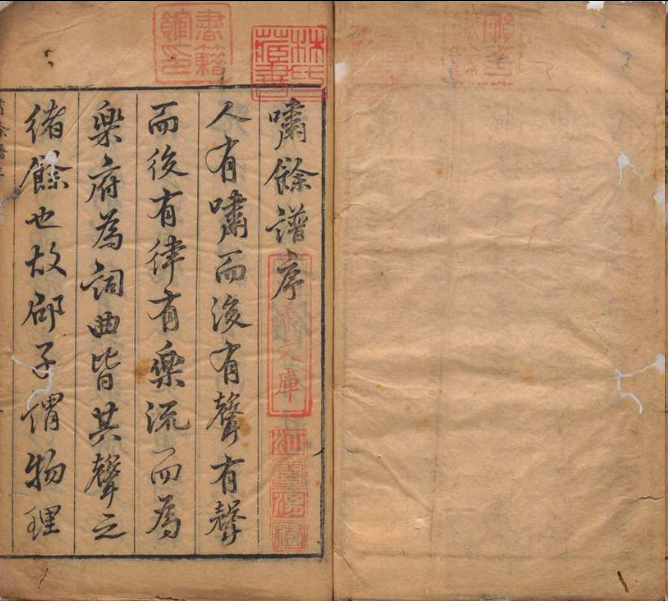 嘯餘譜序
人有嘯而後有聲有聲
而後有律有樂流而為
樂府為詞曲皆其聲之
緒餘也故邵子謂物理